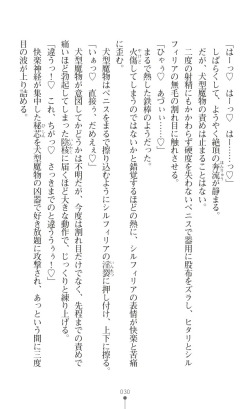 「はーっ♡　はーっ♡　はー……っ♡」
しばらくして、ようやく絶頂の奔流が静まる。
だが、犬型魔物の責めは止まることはない。
二度の射精にもかかわらず硬度を失わないペニスで器用に股布をズラし、ヒタリとシル
フィリアの無毛の割れ目に触れさせる。
「ひゃぅ♡　あづぃ……っ♡」
まるで熱した鉄棒のようだった。
火傷してしまうのではないかと錯覚するほどの熱に、シルフィリアの表情が快楽と苦痛
に歪む。
犬型魔物はペニスをまるで擦り込むようにシルフィリアの淫裂に押し付け、上下に擦る。
「いぁっ♡　直接っ、だめぇぇ♡」
犬型魔物が意図してかどうかは不明だが、今度は割れ目だけでなく、先程までの責めで
痛いほど勃起してしまった陰核に届くほど大きな動作で、じっくりと練り上げる。
「違うっ！♡　これ、ちがっ♡　さっきまでのと違うぅぅぅ！♡」
快楽神経が集中した秘芯を犬型魔物の凶器で好き放題に攻撃され、あっという間に三度
目の波が上り詰める。
030